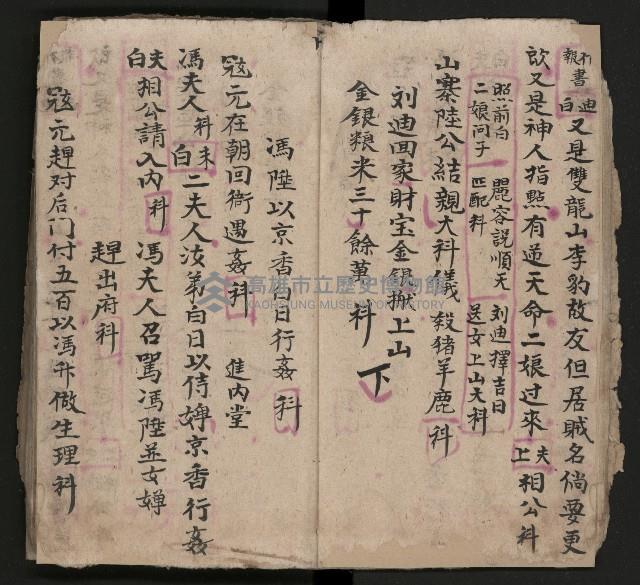 報 不書 迪白 又是雙龍山李豹故友但居賊名倘要更
歆又是神人指點有逆天命二娘过來 夫上 相公 科
照前白 麗容說順天 刘迪擇吉日
二娘问子 匹配科 送女上山大科
山寨陸公結親大科儀 殺猪羊鹿 科
刘迪回家財宝金銀搬上山
金銀粮米三十餘萬 科 下
馮陞以京香白日行姦 科
冦元在朝回衙遇姦 科 進内堂
馮夫人 科 夫白 二夫人汝弟白日以侍婢京香行姦
夫白 相公請入内 科 馮夫人召罵馮陞並女婢
趕出府科
冦元趕对后门付五百以馮升做生理科
高雄市立歷史博物館
KAOHSIUNG MUSEUM OF HISTORY